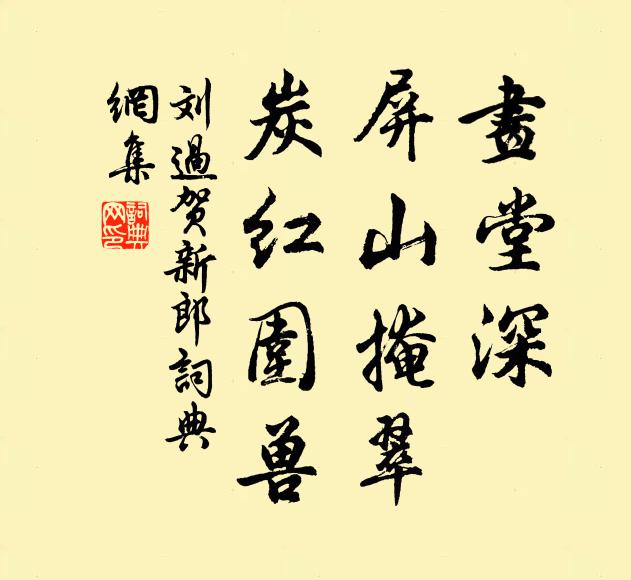 畫堂深
屏山掩翠
炭红圍兽
刘過贺新郎詞典
網集
詞典
网印